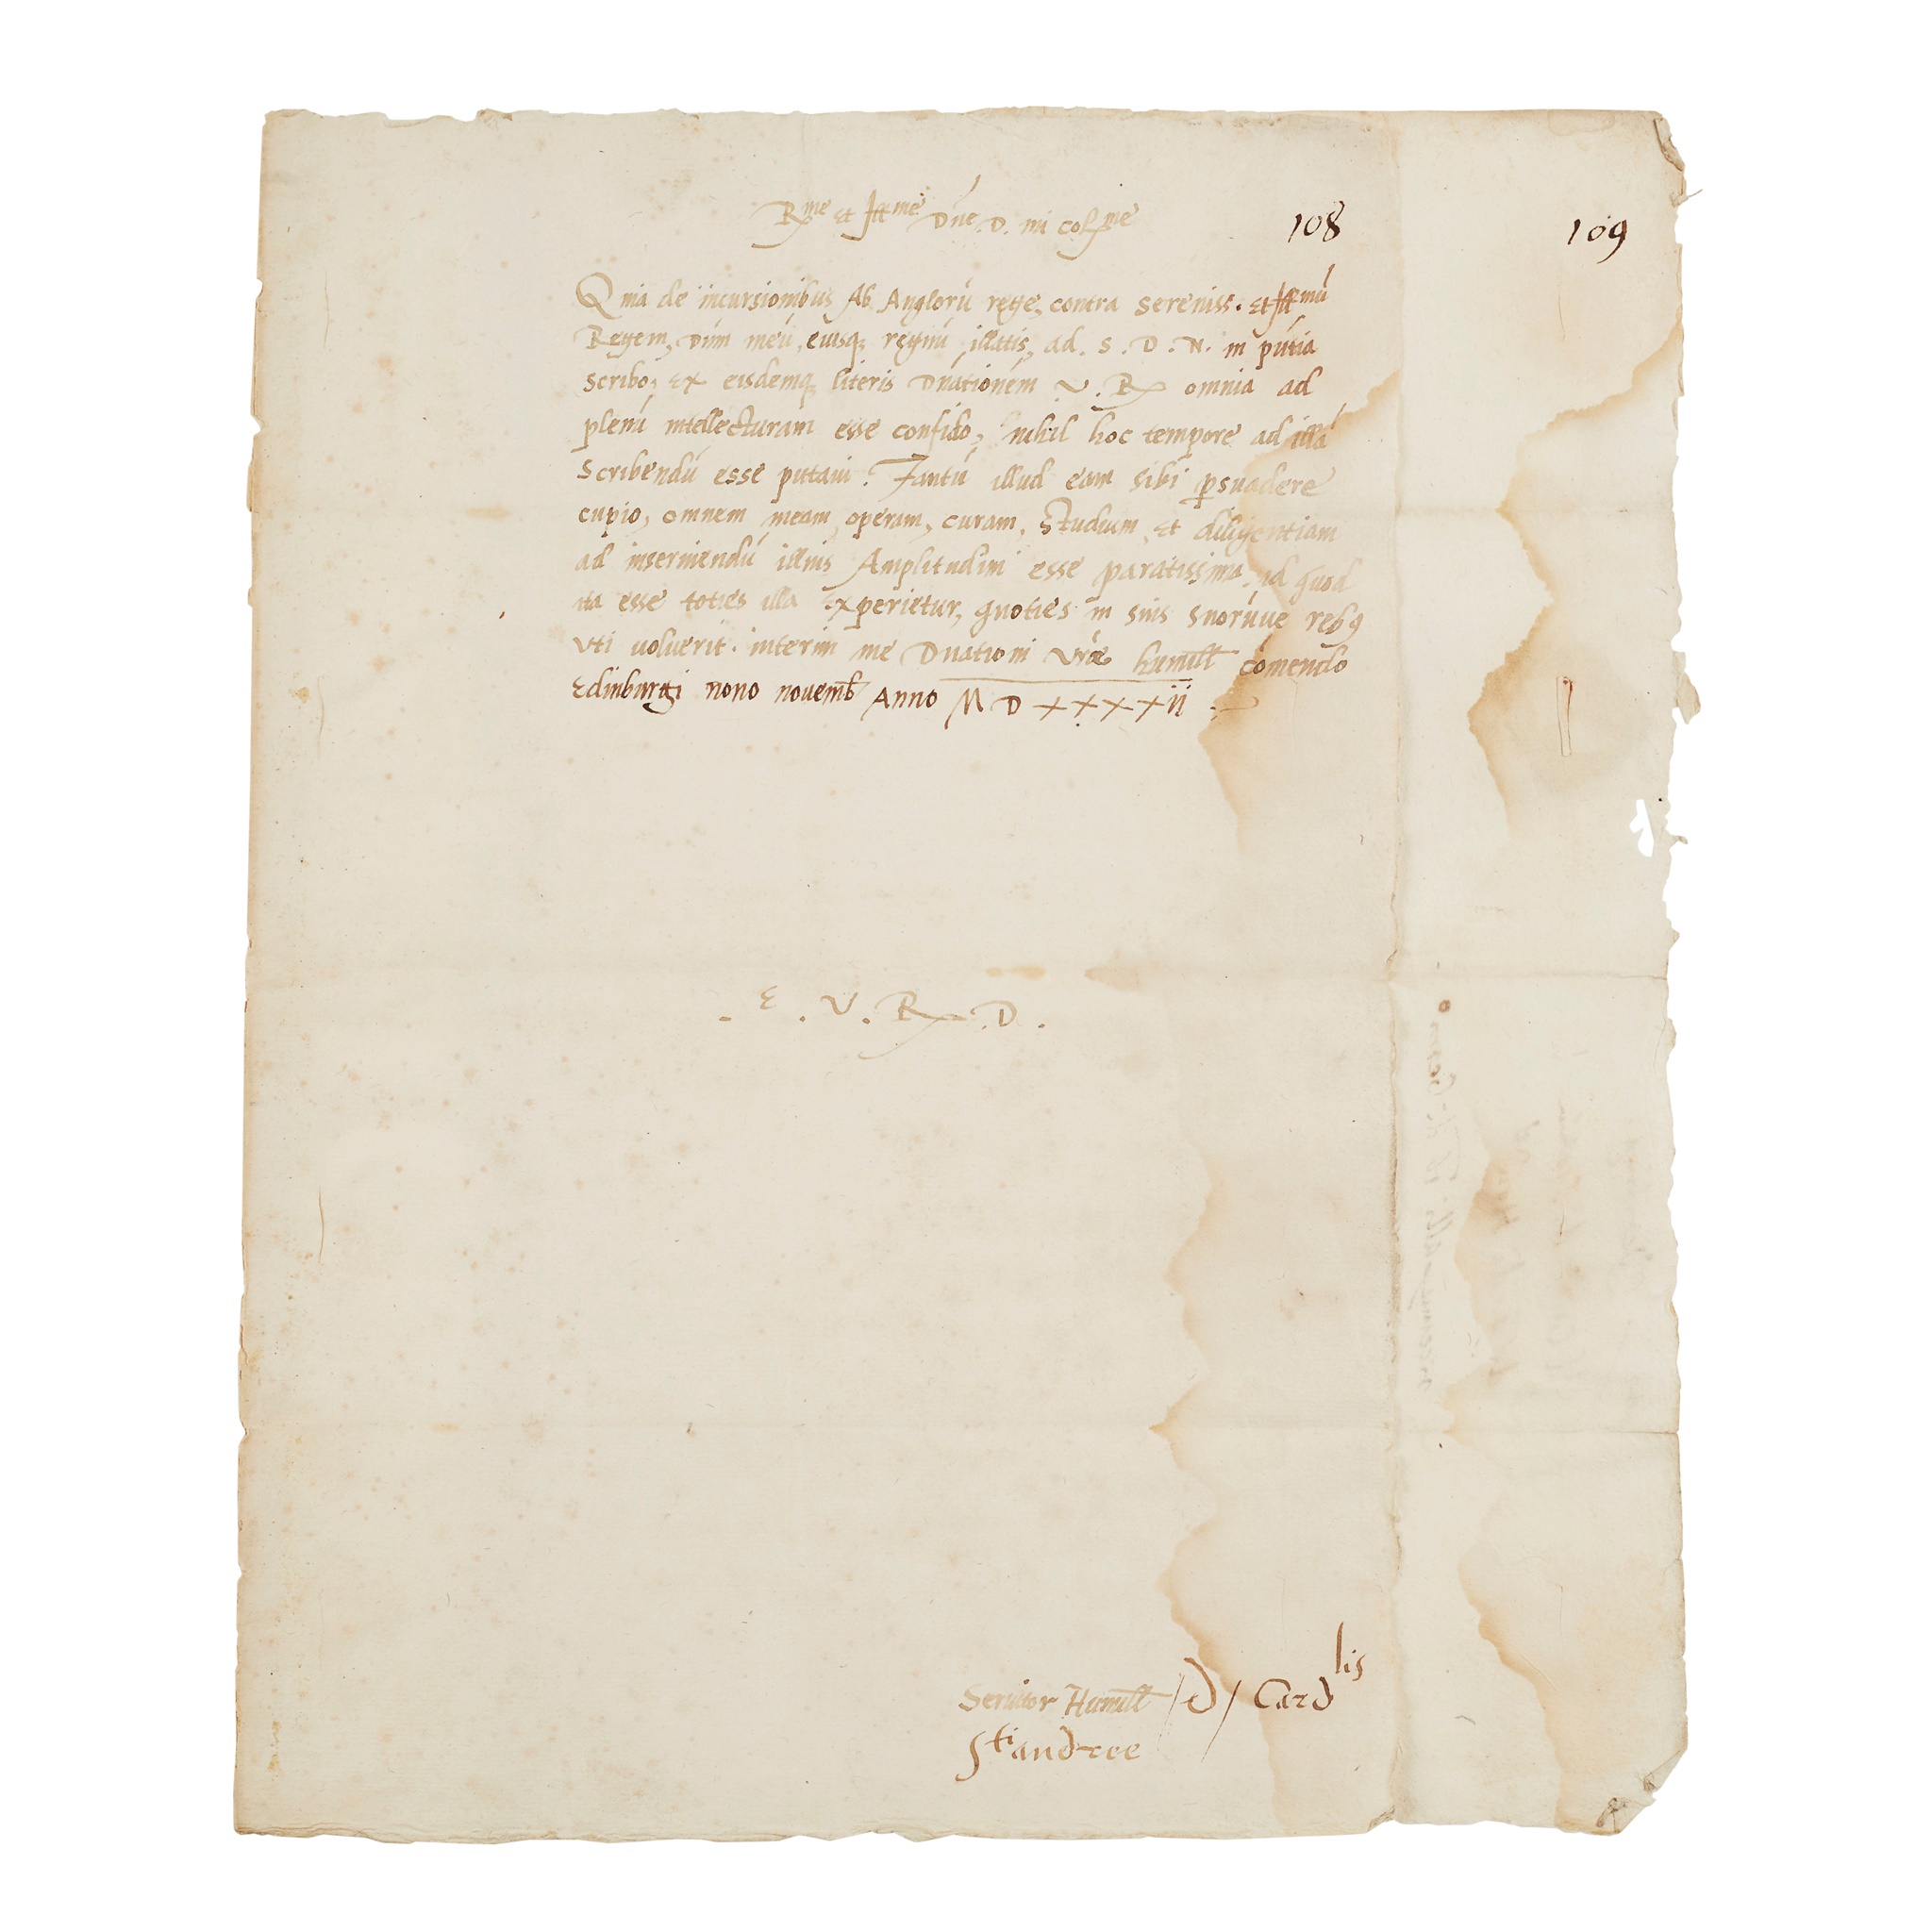 R^me et Ill^me Dn̄e D. mi col^me
108
109
Quia de incursionibus Ab Anglorū rege, contra Sereniss. et Ill^mū
Regem, Dn̄m meū, eiusq, regnū illatis, ad. S. D. N. in p̄ntia
Scribo, Ex eisdemq, literis Dn̄ationem V. R. omnia ad
plenū intellecturam esse confido, nihil hoc tempore ad illā
Scribendū esse putavi. Tantū illud eam sibi persuadere
cupio, omnem meam operam, curam, Studium, et diligentiam
ad inserviendū illius Amplitudini esse paratissimā, id quod
ita esse toties illa Experietur, quoties in suis suorūve rebus
Uti voluerit. interim me Dn̄ationi Vr̄ae humill cōmendo
Edinburgi nono novemb Anno M D XXXXii
. E. V. R. D.
Servitor Humill D Card^lis
S^ti andree